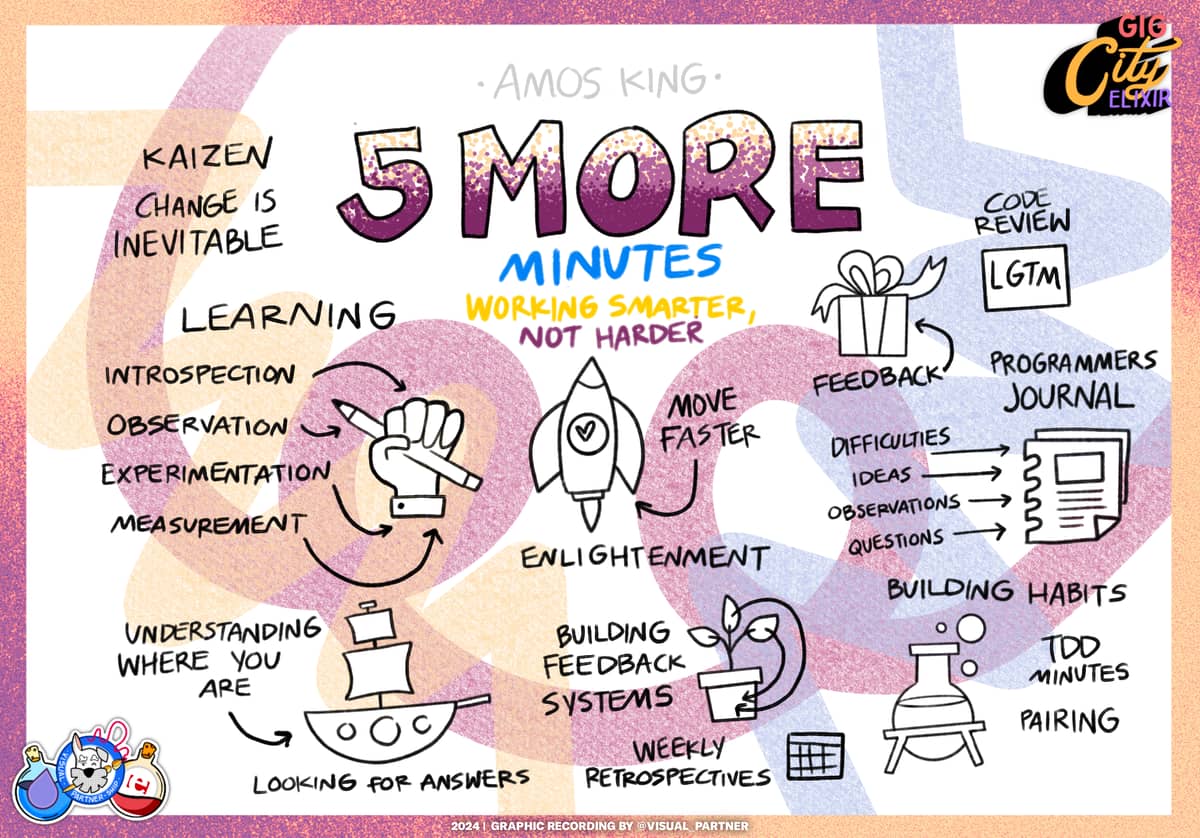 GIG
City
ELIXIR
· AMOS KING ·
5 MORE
MINUTES
WORKING SMARTER,
NOT HARDER
KAIZEN
CHANGE IS
INEVITABLE
LEARNING
INTROSPECTION
OBSERVATION
EXPERIMENTATION
MEASUREMENT
MOVE
FASTER
ENLIGHTENMENT
CODE
REVIEW
LGTM
FEEDBACK
PROGRAMMERS
JOURNAL
DIFFICULTIES
IDEAS
OBSERVATIONS
QUESTIONS
UNDERSTANDING
WHERE YOU
ARE
LOOKING FOR ANSWERS
BUILDING
FEEDBACK
SYSTEMS
WEEKLY
RETROSPECTIVES
BUILDING HABITS
TDD
MINUTES
PAIRING
VISUAL
PARTNER
2024 | GRAPHIC RECORDING BY @VISUAL_PARTNER